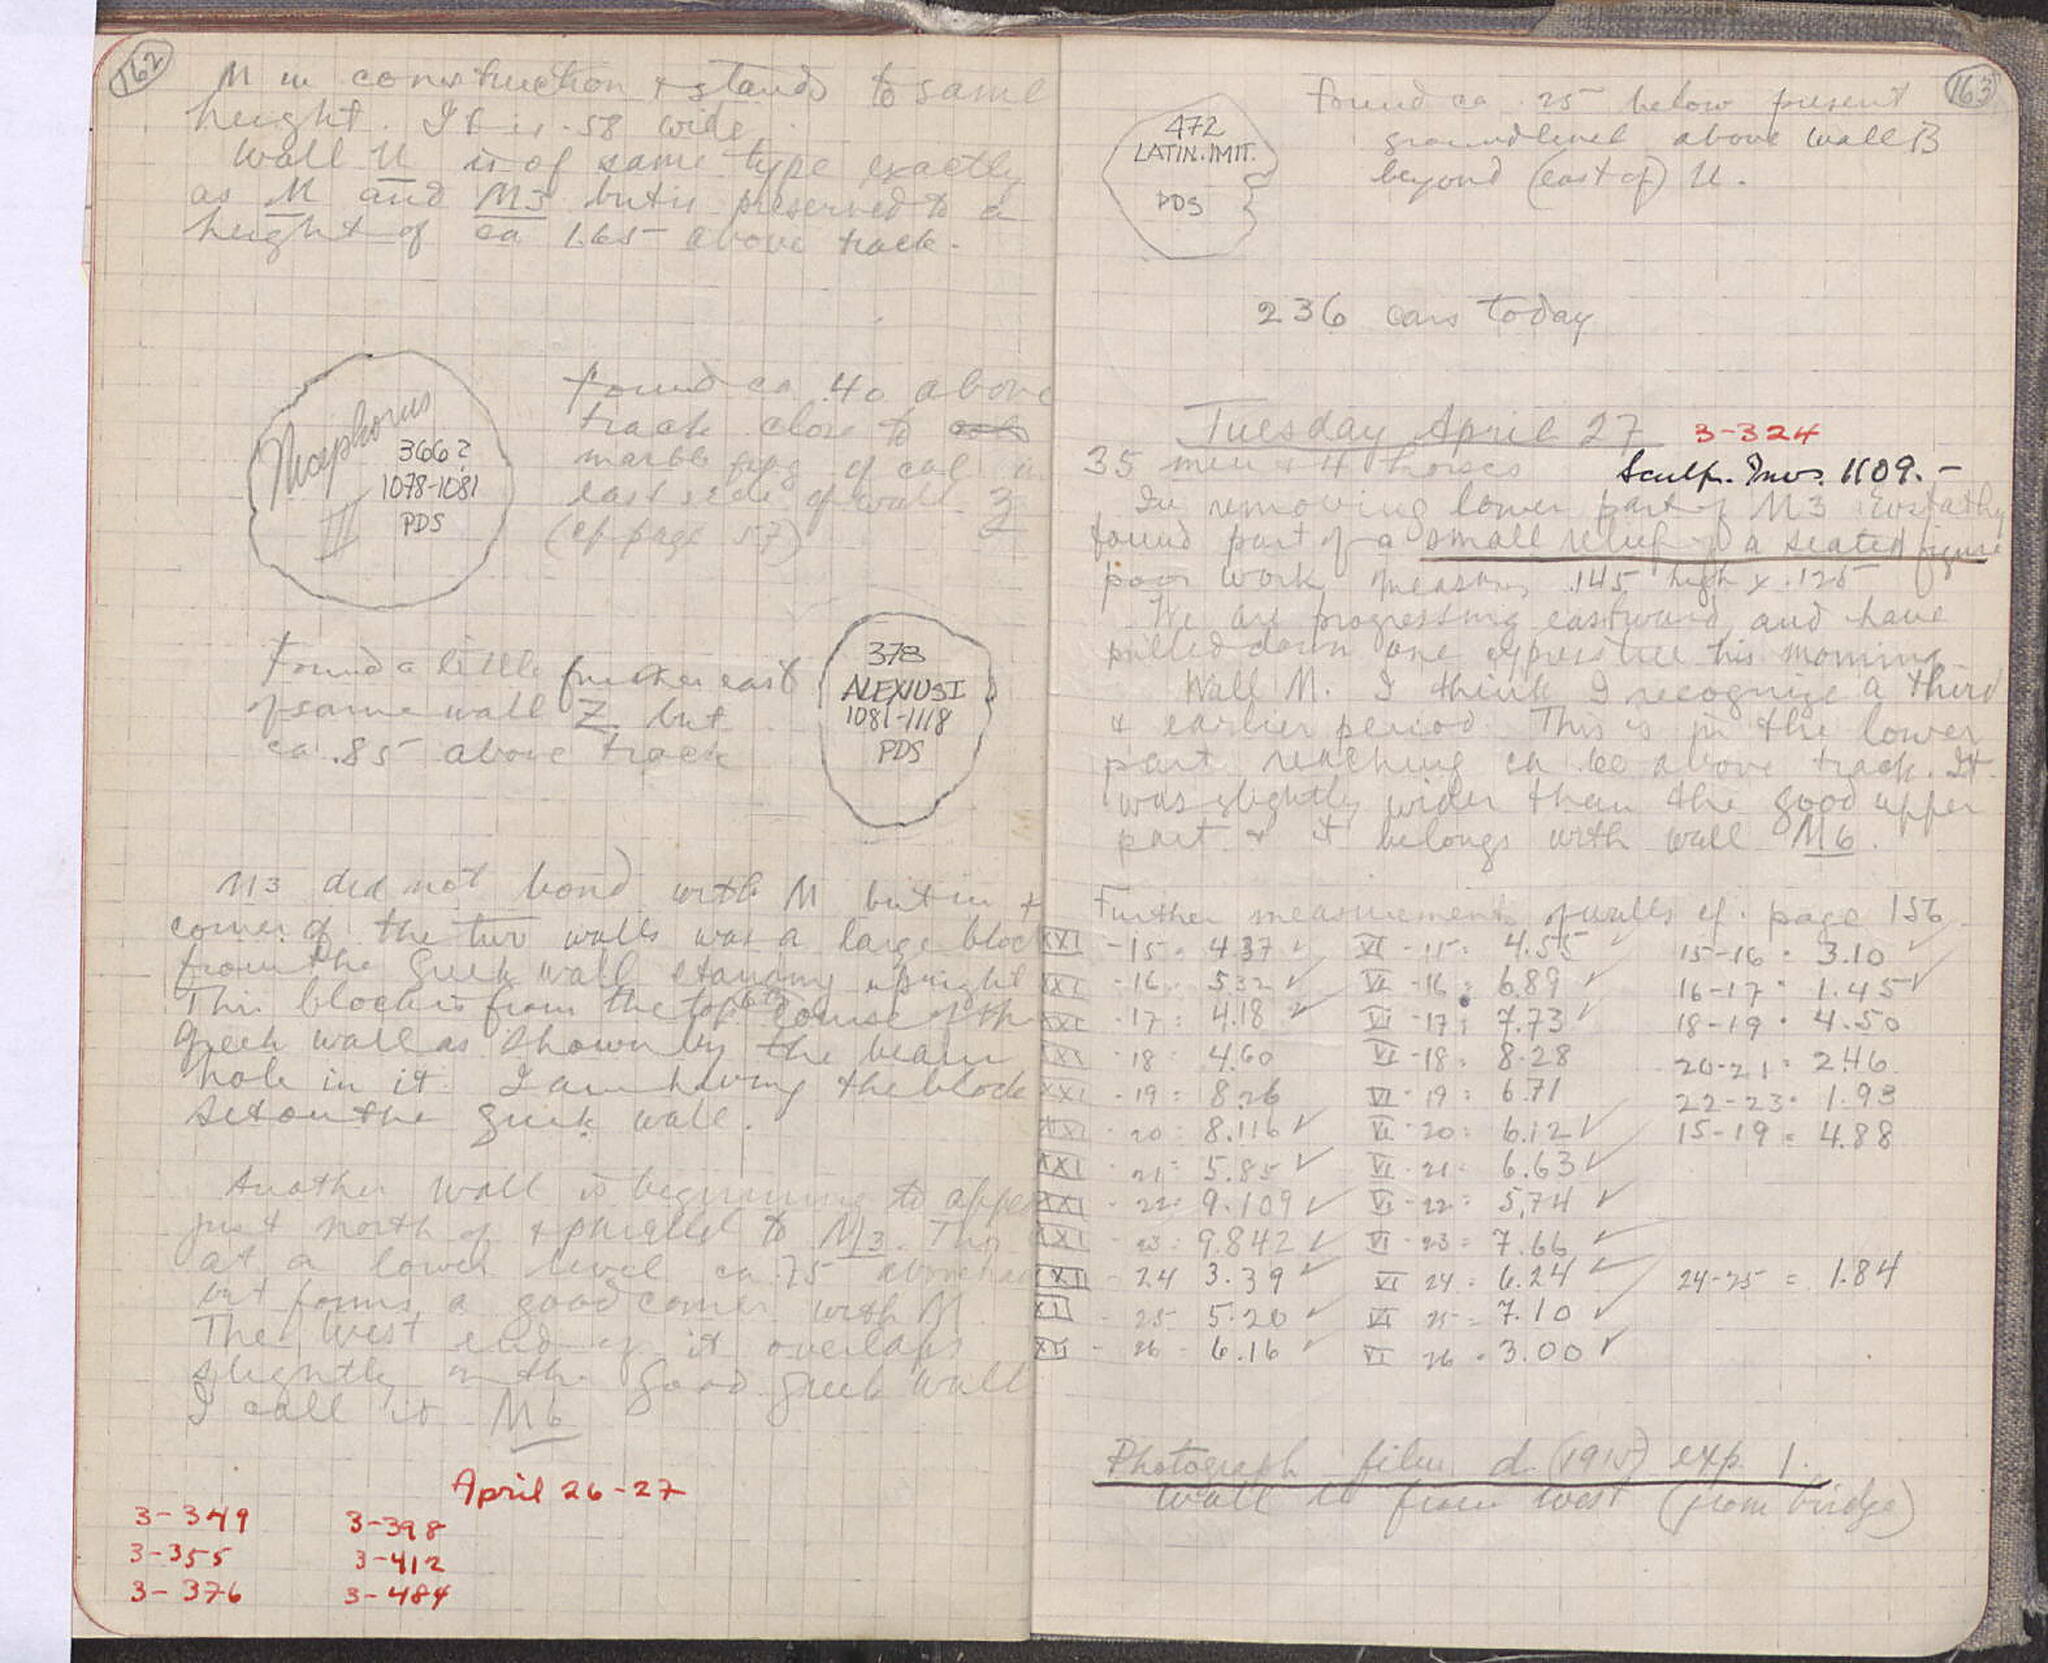 162
M in construction & stands to same
height. It is .58 wide.
Wall U is of same type exactly
as M and M3 but is preserved to a
height of ca 1.65 above track.
Nicephorus
III
366?
1078-1081
PDS
Found ca .40 above
track close to
marble of col in
east side of wall Z
(cf page 57)
Found a little further east
of same wall Z but
ca .85 above track
378
ALEXIUS I
1081-1118
PDS
M3 did not bond with M but in
corner of the two walls was a large block
from the Greek wall standing upright
This block is from the top course of the
Greek wall as shown by the beam
hole in it. I am having the block
set on the Greek wall.
Another wall is beginning to appear
just north of & parallel to M3. This
at a lower level ca .75 above
but forms a good corner with M
The west end of it overlaps
slightly on the good Greek wall
I call it M6
April 26-27
3-349 3-398
3-355 3-412
3-376 3-484
163
472
LATIN.IMIT.
PDS
Found ca .25 below present
ground level above wall B
beyond (east of) U.
236 cars today
Tuesday April 27 3-324
35 men & 4 horses Sculp. Inv. 1109.-
In removing lower part of M3 Eustathy
found part of a small relief of a seated figure
poor work measures .145 high x .125
We are progressing eastward and have
pulled down one cypress tree this morning
Wall M. I think I recognize a third
& earlier period. This is in the lower
part reaching ca above track. It
was slightly wider than the good upper
part & it belongs with wall M6.
Further measurements of walls cf. page 156
XXI -15 = 4.37 ✓ VI -15 = 4.55 ✓ 15-16 = 3.10 ✓
XXI -16 = 5.32 ✓ VI -16 = 6.89 ✓ 16-17 = 1.45 ✓
XXI -17 = 4.18 ✓ VI -17 = 7.73 ✓ 18-19 = 4.50
XXI -18 = 4.60 VI -18 = 8.28 20-21 = 2.46
XXI -19 = 8.26 VI -19 = 6.71 22-23 = 1.93
XXI -20 = 8.116 ✓ VI -20 = 6.12 ✓ 15-19 = 4.88
XXI -21 = 5.85 ✓ VI -21 = 6.63 ✓
XXI -22 = 9.109 ✓ VI -22 = 5.74 ✓
XXI -23 = 9.842 ✓ VI -23 = 7.66 ✓
XII -24 3.39 ✓ VI 24 = 6.24 ✓ 24-25 = 1.84
XII -25 5.20 ✓ VI 25 = 7.10 ✓
XII -26 = 6.16 ✓ VI 26 = 3.00 ✓
Photograph film d (1915) exp 1.
Wall from west (from bridge)